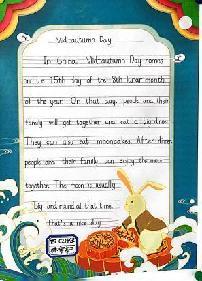 Mid-autumn Day
In China, Mid-autumn Day comes
on the 15th day of the 8th lunar month
of the year. On that day, people and their
family will get together and eat a
They can also eat mooncakes. After dinner
people and their family can enjoy the moon
together. The moon is usually
big and round at that time.
That's a nice day.